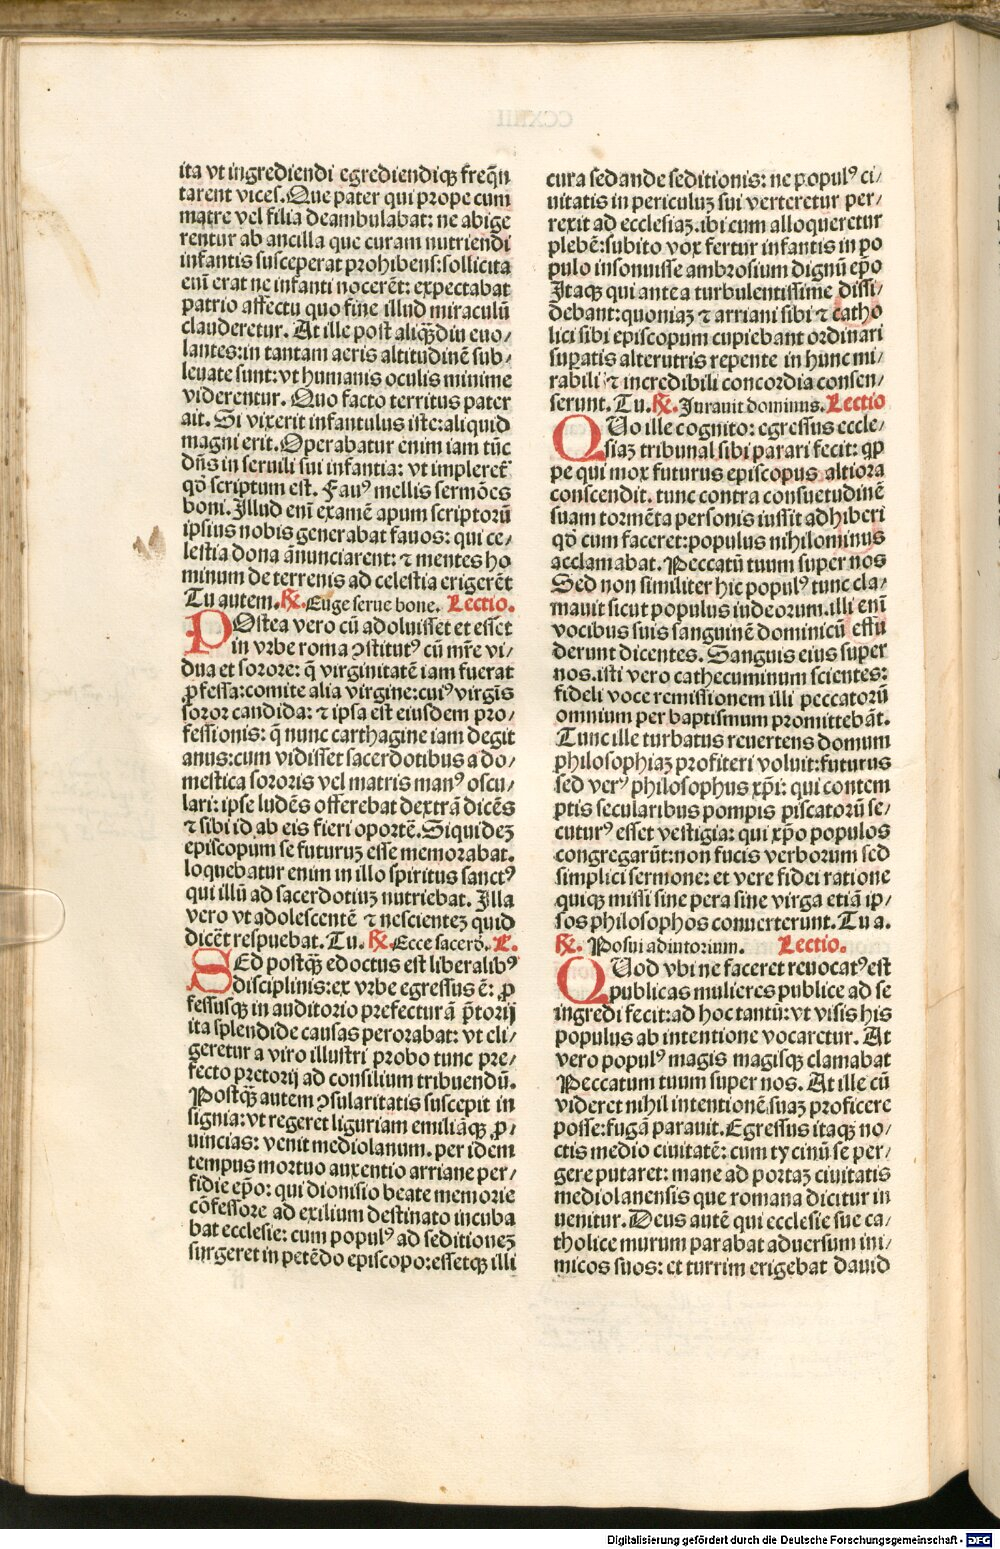 ita vt ingrediendi egrediendiqꝫ freq̄n
tarent vices. Que pater qui prope cum
matre vel filia deambulabat: ne abige
rentur ab ancilla que curam nutriendi
infantis susceperat prohibens: sollicita
eni̅ erat ne infanti nocerēt: expectabat
patrio affectu quo fine illud miraculū
clauderetur. At ille post aliqꝫdiu euo/
lantes: in tantam aeris altitudinē sub/
leuate sunt: vt humanis oculis minime
viderentur. Quo facto territus pater
ait. Si vixerit infantulus iste: aliquid
magni erit. Operabatur enim iam tūc
dn̄s in seruili sui infantia: vt impleret᷑
qd̄ scriptum est. Fauꝰ mellis sermōes
boni. Illud eni̅ examē apum scriptorū
ipsius nobis generabat fauos: qui ce/
lestia dona ānunciarent: ⁊ mentes ho
minum de terrenis ad celestia erigerēt
Tu autem. ℟. Euge serue bone. Lectio.
POstea vero cū adoluisset et esset
in vrbe roma ꝯstitutꝰ cū mr̄e vi/
dua et sorore: q̄ virginitatē iam fuerat
ꝓfessa: comite alia virgine: cuiꝰ virgīs
soror candida: ⁊ ipsa est eiusdem pro/
fessionis: q̄ nunc carthagine iam degit
anus: cum vidisset sacerdotibus a do/
mestica sororis vel matris manꝰ oscu/
lari: ipse ludēs offerebat dextrā dicēs
⁊ sibi id ab eis fieri oportē. Siquidez
episcopum se futuruꝫ esse memorabat.
loquebatur enim in illo spiritus sanctꝰ
qui illū ad sacerdotiuꝫ nutriebat. Illa
vero vt adolescentē ⁊ nescienteꝫ quid
dicēt respuebat. Tu. ℟. Ecce sacerd̄. L.
SEd postqꝫ edoctus est liberalibꝰ
disciplinis: ex vrbe egressus ē: ꝓ
fessusqꝫ in auditorio prefecturā p̄torij
ita splendide causas perorabat: vt eli/
geretur a viro illustri probo tunc pre/
fecto pretorij ad consilium tribuendū.
Postqꝫ autem ꝯsularitatis suscepit in
signia: vt regeret liguriam emiliāqꝫ ꝓ/
uincias: venit mediolanum. per idem
tempus mortuo auxentio arriane per/
fidie ep̄o: qui dionisio beate memorie
cōfessore ad exilium destinato incuba
bat ecclesie: cum populꝰ ad seditioneꝫ
surgeret in petēdo episcopo: essetqꝫ illi
cura sedande seditionis: ne populꝰ ci/
uitatis in periculuꝫ sui verteretur per/
rexit ad ecclesiaꝫ. ibi cum alloqueretur
plebē: subito vox fertur infantis in po
pulo insonuisse ambrosium dignū ep̄o
Itaqꝫ qui antea turbulentissime dissi/
debant: quoniaꝫ ⁊ arriani sibi ⁊ catho
lici sibi episcopum cupiebant ordinari
suꝑatis alterutris repente in hunc mi/
rabili ⁊ incredibili concordia consen/
serunt. Tu. ℟. Jurauit dominus. Lectio
QUo ille cognito: egressus eccle/
siaꝫ tribunal sibi parari fecit: qꝓ
pe qui mox futurus episcopus altiora
conscendit. tunc contra consuetudinē
suam tormēta personis iussit adhiberi
qd̄ cum faceret: populus nihilominus
acclamabat. Peccatū tuum super nos
Sed non similiter hic populꝰ tunc cla/
mauit sicut populus iudeorum. illi eni̅
vocibus suis sanguinē dominicū effu
derunt dicentes. Sanguis eius super
nos. isti vero cathecuminum scientes:
fideli voce remissionem illi peccatorū
omnium per baptismum promittebāt.
Tunc ille turbatus reuertens domum
philosophiaꝫ profiteri voluit: futurus
sed verꝰ philosophus xp̄i: qui contem
ptis secularibus pompis piscatorū se/
cuturꝰ esset vestigia: qui xp̄o populos
congregarūt: non fucis verborum sed
simplici sermone: et vere fidei ratione
quiqꝫ missi sine pera sine virga etiā ip/
sos philosophos conuerterunt. Tu a.
℟. Posui adiutorium. Lectio.
QUod vbi ne faceret reuocatꝰ est
publicas mulieres publice ad se
ingredi fecit: ad hoc tantū: vt visis his
populus ab intentione vocaretur. At
vero populꝰ magis magisqꝫ clamabat
Peccatum tuum super nos. At ille cū
videret nihil intentionē suaꝫ proficere
posse: fugā parauit. Egressus itaqꝫ no/
ctis medio ciuitatē: cum tycinū se per/
gere putaret: mane ad portaꝫ ciuitatis
mediolanensis que romana dicitur in
uenitur. Deus autē qui ecclesie sue ca/
tholice murum parabat aduersum ini/
micos suos: et turrim erigebat dauid
Digitalisierung gefördert durch die Deutsche Forschungsgemeinschaft - DFG